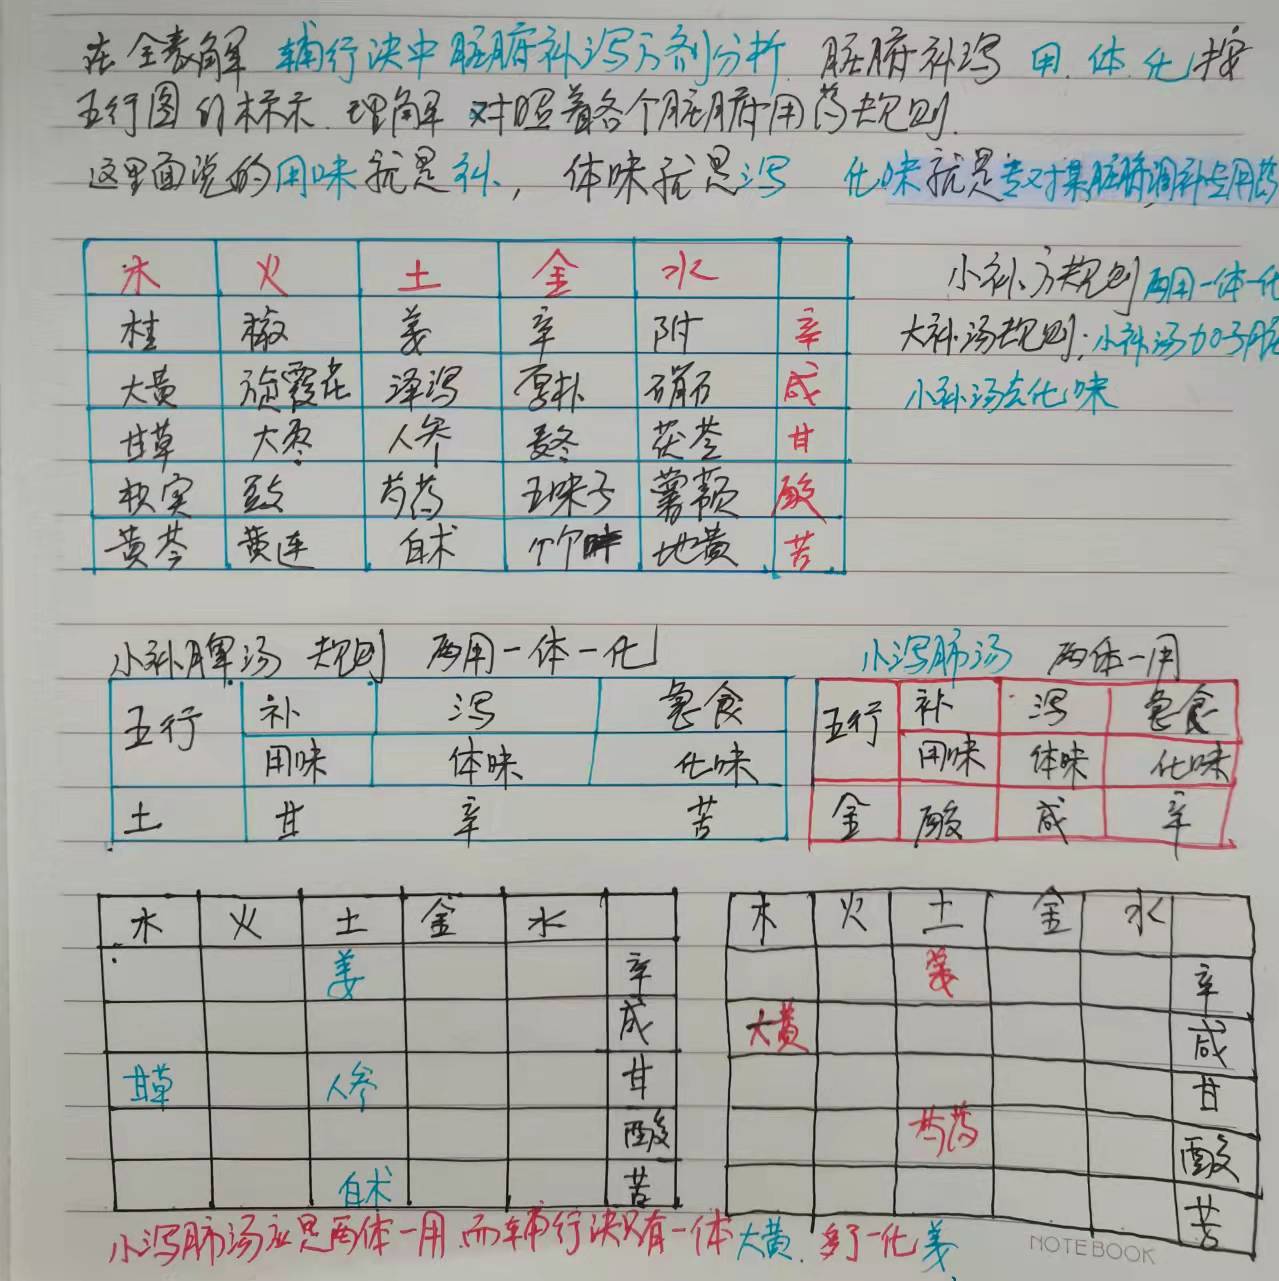 在全表解 辅行决中脏腑补泻方剂分析 脏腑补泻 用.体.化 按
五行图的标示.理解 对照着各个脏腑用药规则.
这里面说的用味就是补, 体味就是泻 化味就是专对某脏腑调补与用药
木 火 土 金 水
桂 椒 姜 辛 附 辛
大黄 旋覆花 泽泻 厚朴 硝石 咸
甘草 大枣 人参 麦冬 茯苓 甘
枳实 豉 芍药 五味子 薯蓣 酸
黄芩 黄连 白术 竹叶 地黄 苦
小补方规则 两用一体一化
大补汤规则:小补汤加子脏
小补汤去化味
小补脾汤 规则 两用一体一化
五行 补 泻 急食
用味 体味 化味
土 甘 辛 苦
小泻肺汤 两体一用
五行 补 泻 急食
用味 体味 化味
金 酸 咸 辛
木 火 土 金 水
姜 辛
咸
甘草 人参 甘
酸
白术 苦
木 火 土 金 水
姜 辛
大黄 咸
甘
芍药 酸
苦
小泻肺汤应是两体一用.而辅行决只有一体大黄.多了一化姜
NOTEBOOK